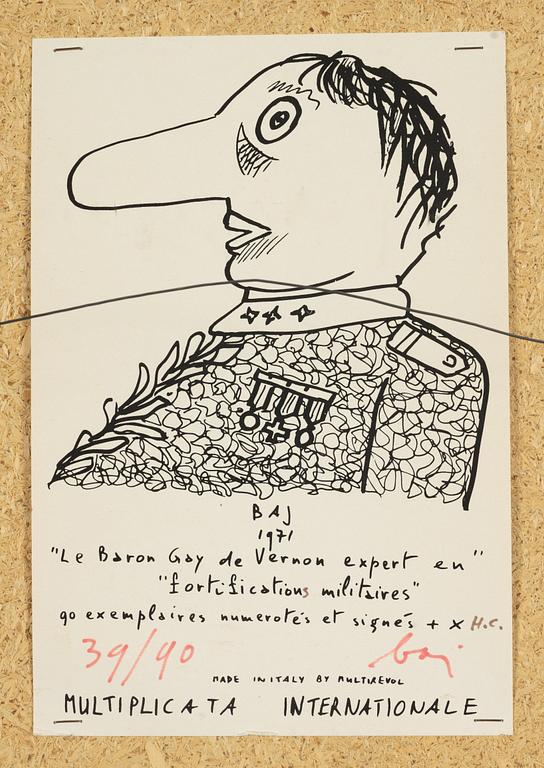 BAJ
1971
"Le Baron Gay de Vernon expert en"
"fortifications militaires"
90 exemplaires numerotés et signés + X H.C.
39/90 baj
MADE IN ITALY BY MULTIREVOL
MULTIPLICATA INTERNATIONALE